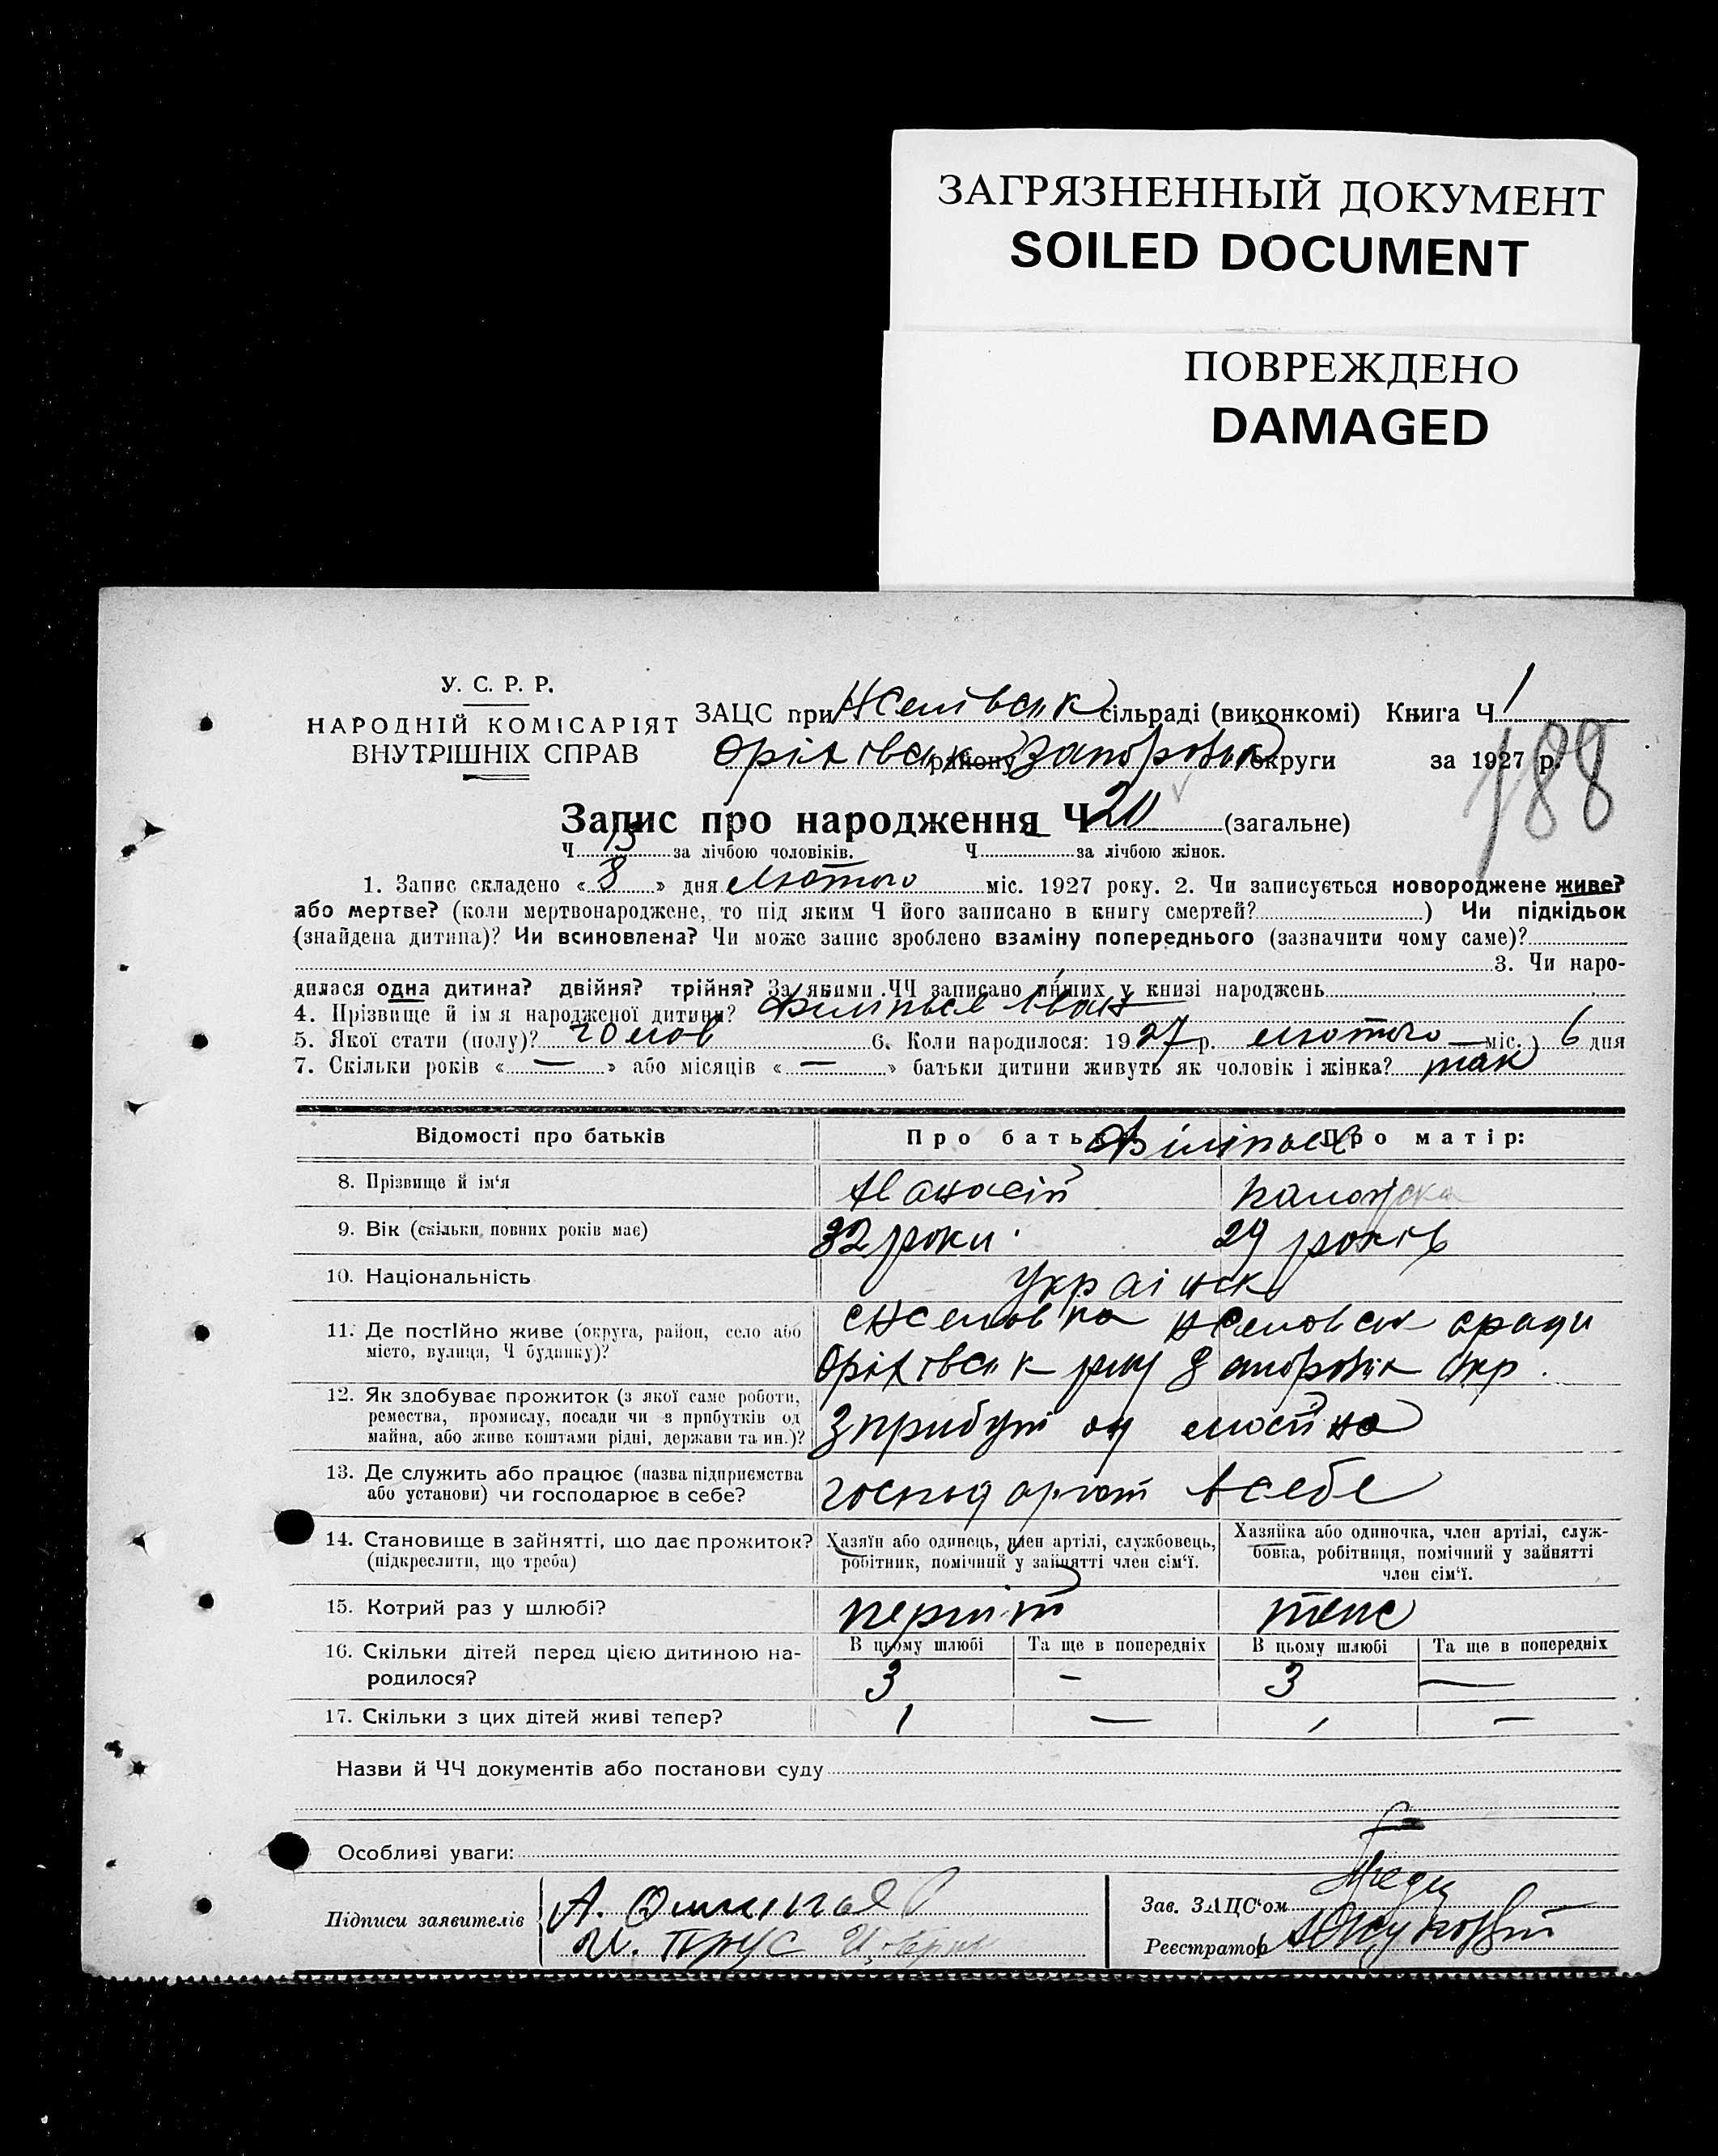 ЗАГРЯЗНЕННЫЙ ДОКУМЕНТ
SOILED DOCUMENT
ПОВРЕЖДЕНО
DAMAGED
У. С. Р. Р.
НАРОДНІЙ КОМІСАРІЯТ
ВНУТРІШНІХ СПРАВ
ЗАЦС при сільраді (виконкомі) Книга Ч. 1
Оріхівськ району Запорозьк округи за 1927 р.
188
Запис про народження Ч 20 (загальне)
Ч. 13 за лічбою чоловіків. Ч. за лічбою жінок.
1. Запис складено « 8 » дня лютого міс. 1927 року. 2. Чи записується новороджене живе?
або мертве? (коли мертвонароджене, то під яким Ч його записано в книгу смертей? ) Чи підкідьок
(знайдена дитина)? Чи всиновлена? Чи може запис зроблено взаміну попереднього (зазначити чому саме)?
3. Чи наро-
дилася одна дитина? двійня? трійня? За якими ЧЧ записано інших у книзі народжень
4. Прізвище й ім'я народженої дитини? Філіпьєв Іван
5. Якої стати (полу)? чолов 6. Коли народилося: 1927 р. лютого міс. 6 дня
7. Скільки років « — » або місяців « — » батьки дитини живуть як чоловік і жінка? так
Відомості про батьків Про батька: Про матір:
Філіпьєв
8. Прізвище й ім'я
9. Вік (скільки повних років має) 32 роки 29 років
10. Національність Українськ
11. Де постійно живе (округа, район, село або
місто, вулиця, Ч будинку)?
Оріхівськ рну Запорозьк Окр.
12. Як здобуває прожиток (з якої саме роботи,
ремества, промислу, посади чи з прибутків од
майна, або живе коштами рідні, держави та ин.)?
з прибут од майна
13. Де служить або працює (назва підприємства
або установи) чи господарює в себе?
господарют в себе
14. Становище в зайнятті, що дає прожиток?
(підкреслити, що треба)
Хазяїн або одинець, член артілі, службовець,
робітник, помічний у зайнятті член сім'ї.
Хазяйка або одиночка, член артілі, служ-
бовка, робітниця, помічний у зайнятті
член сім'ї.
15. Котрий раз у шлюбі? теже
В цьому шлюбі Та ще в попередніх В цьому шлюбі Та ще в попередніх
16. Скільки дітей перед цією дитиною на-
родилося?
3 — 3 —
17. Скільки з цих дітей живі тепер? 1 — 1 —
Назви й ЧЧ документів або постанови суду
Особливі уваги:
Підписи заявителів
А.
И. Прус
Зав. ЗАЦС'ом
Реєстратор